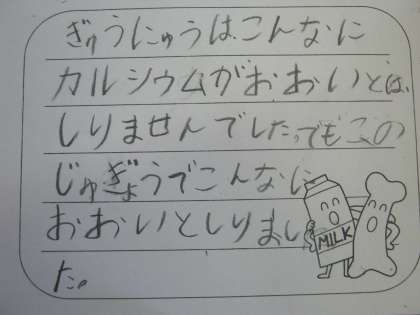 ぎゅうにゅうはこんなに
カルシウムがおおいとは、
しりませんでした。でもこの
じゅぎょうでこんなに
おおいとしりまし
た。
MILK